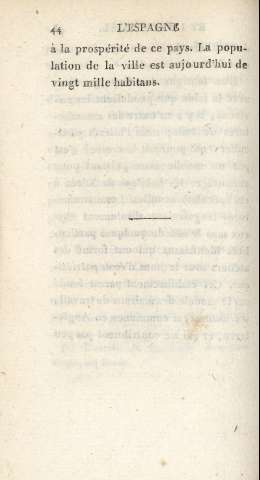 44 L'ESPAGNE
à la prospérité de ce pays. La popu-
lation de la ville est aujourd'hui de
vingt mille habitans.